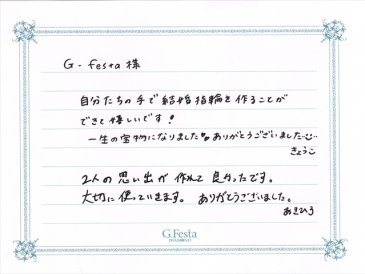 G-festa 様
自分たちの手で結婚指輪を作ることが
できて嬉しいです!
一生の宝物になりました♡ありがとうございました
きょうこ
2人の思い出が作れて良かったです。
大切に使っていきます。ありがとうございました。
あきひろ
G.Festa